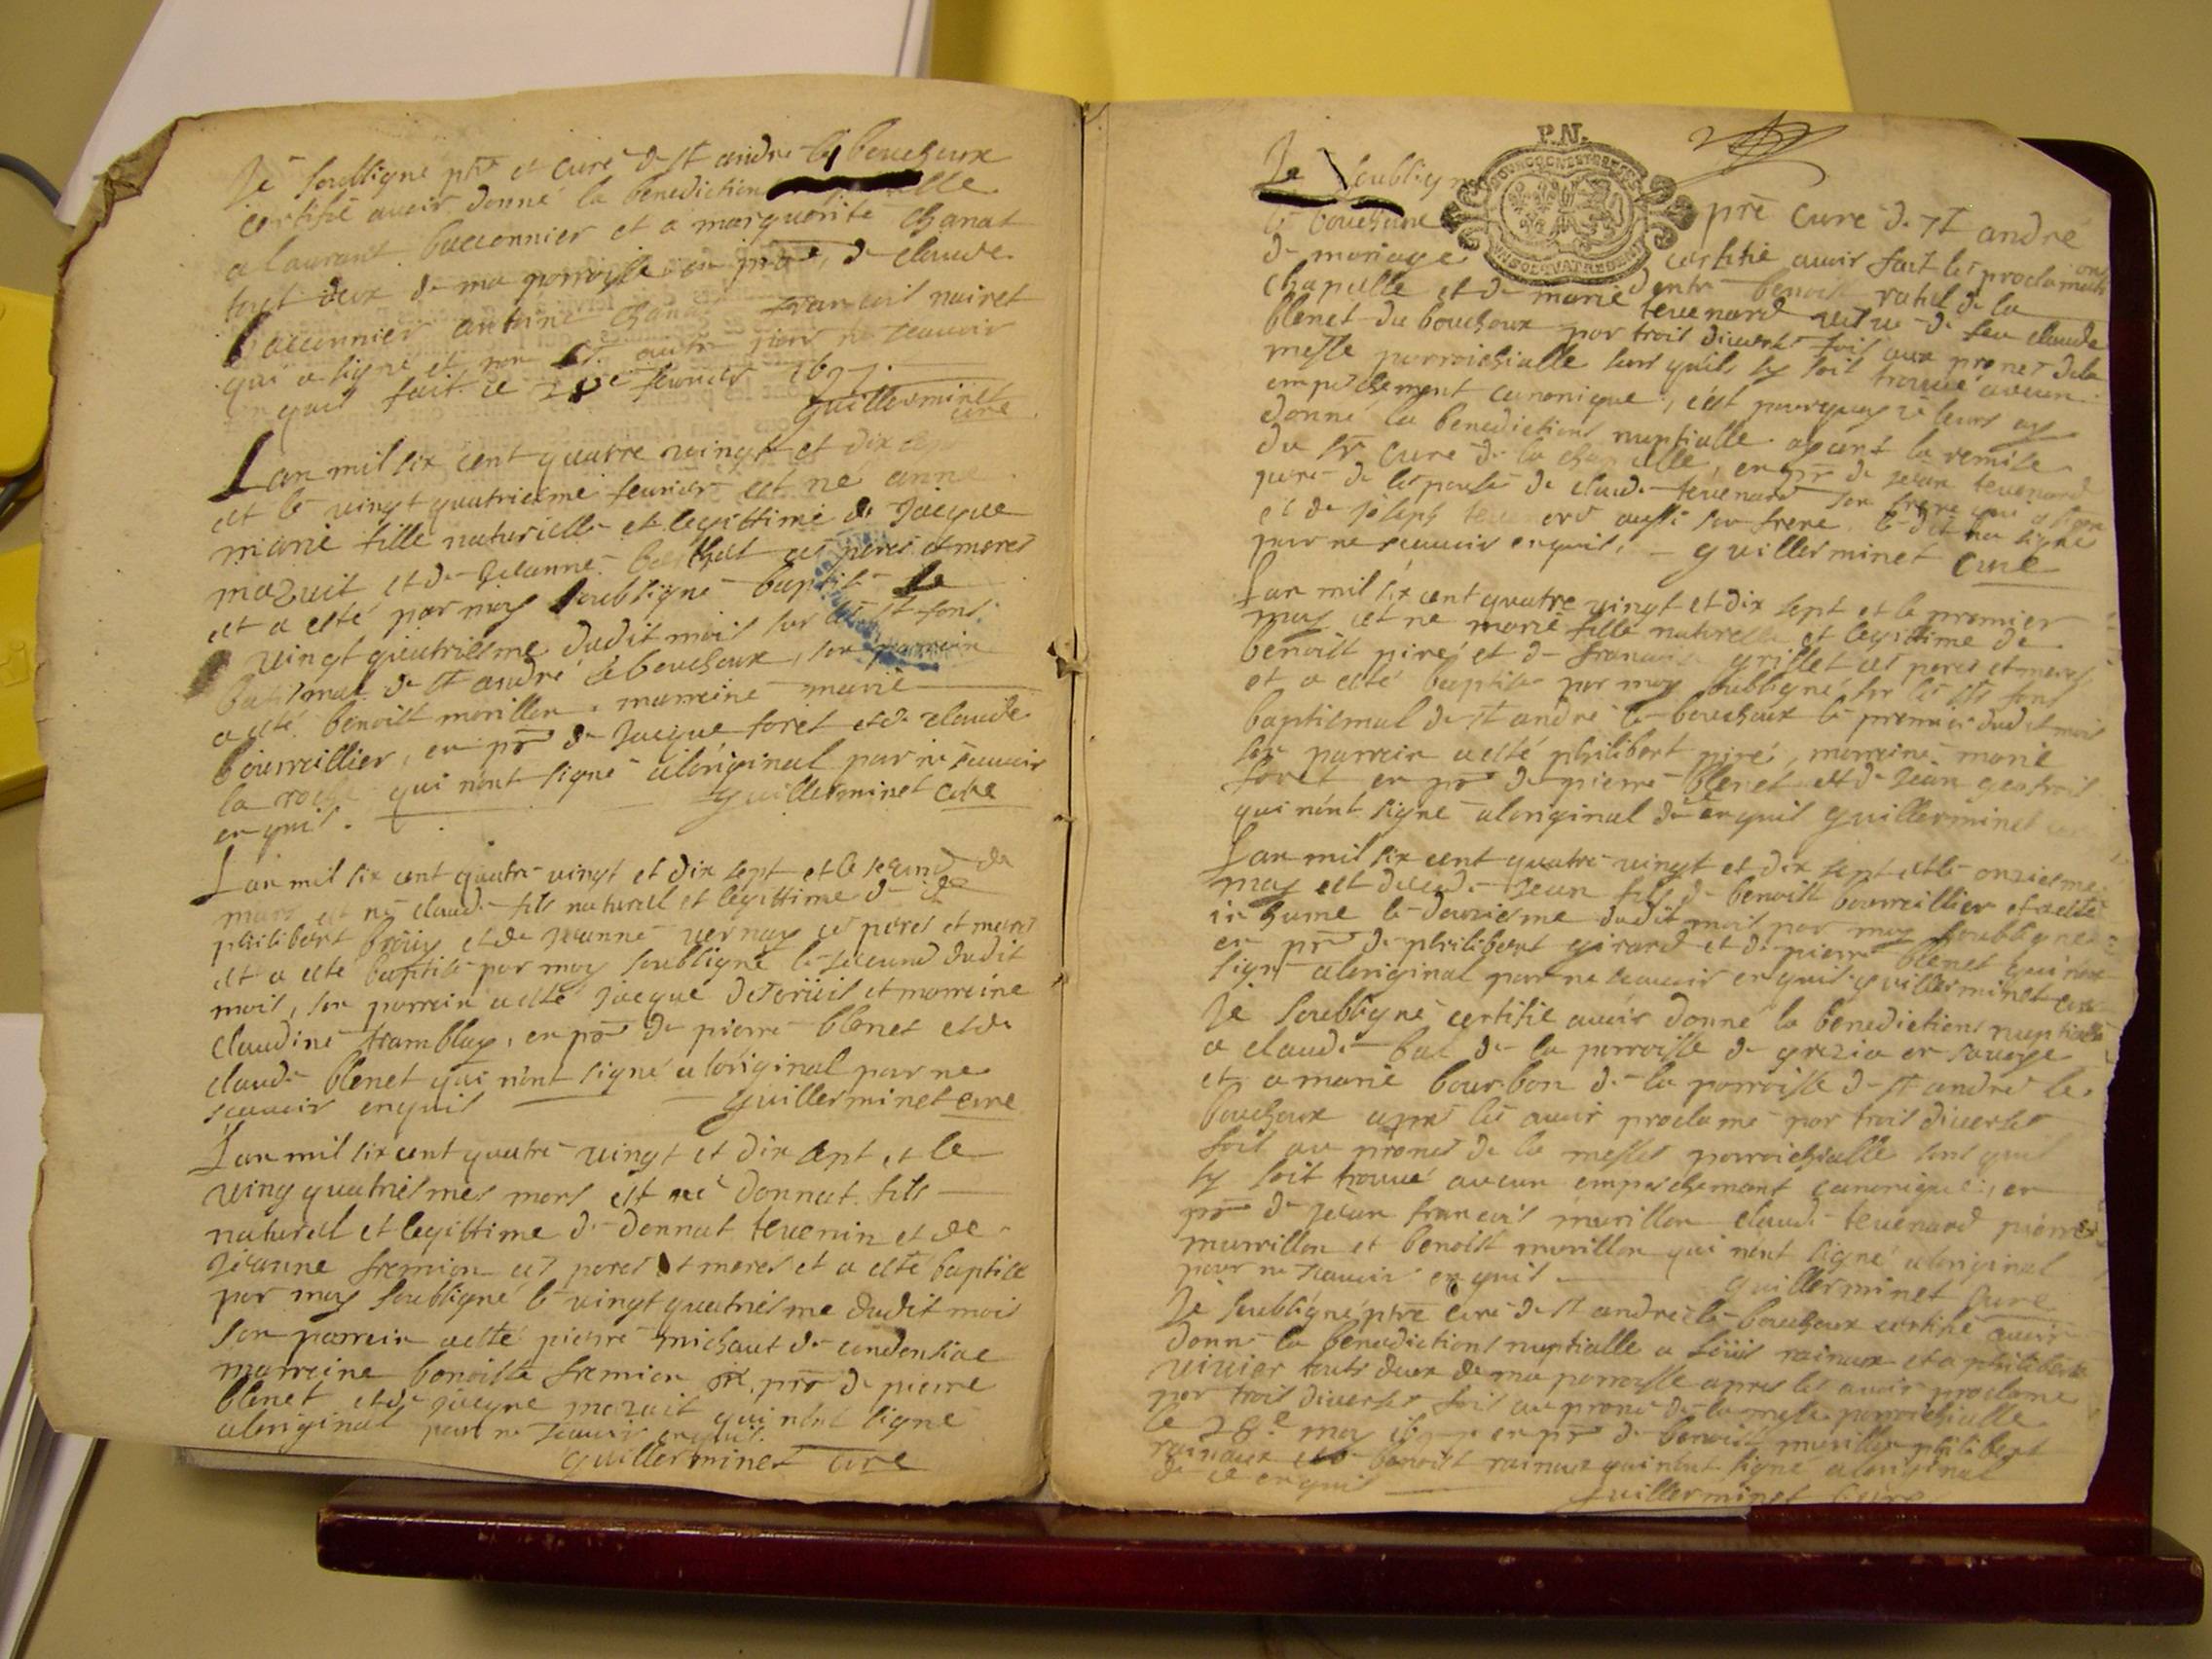 Je soubsigne pre et curé de st andre le bouchoux
certifie avoir donné la benediction
a laurant baconnier et a marguerite chanat
touts deux de ma parroisse en pnce de claude
baconnier antoine chanat francois nairet
qui a signé et non les autres pour ne scavoir
enquis fait ce fevrier 1697.
guillerminet
cure
Lan mil six cent quatre vingt et dix sept
et le vingt quatriesme fevrier est né anne
marie fille naturelle et legittime de Jacque
mazuit et de Jeanne ces peres et meres
et a esté par moy soubsigné baptisé le
vingt quatriesme dudit mois sur les st fons
batismal de st andré le bouchoux, son parrein
a esté benoist morillon marreine marie
bourreillier, en pnce de Jacque foret et de claude
la roche qui nont signé a loriginal par ne scavoir
enquis. guillerminet cure
Lan mil six cent quatre vingt et dix sept et le second de
mars est né claude fils naturel et legittime de
philibert et de Jeanne vernay ces peres et meres
et a esté baptisé par moy soubsigné le second dudit
mois, son parrein a esté Jacque et marreine
claudine tramblay, en pnce de pierre blenet et de
claude blenet qui nont signé a loriginal par ne
scavoir enquis guillerminet cure
Lan mil six cent quatre vingt et dix sept et le
ving quatriesmes mars est né donnat fils
naturel et legittime de donnat tevenin et de
Jeanne fremion ces peres et meres et a esté baptisé
par moy soubsigné le vingt quatriesme dudit mois
son parrein a esté pierre michaut de condensiae
marreine benoiste fremion en pnce de pierre
blenet et de Jacque mazuit qui nont signé
a loriginal pour ne scavoir enquis.
guillerminet cure
P.N.
Je soubsigne pre cure de st andre
le bouchoux certifie avoir fait les proclamations
de mariage dentre benoist ratel de la
chapelle et de marie tevenard vefve de feu claude
blenet du bouchoux par trois diverses fois aux prones de la
messe parroichialle sans quils sy soit trouvé aucun
empeschement canonique, cest pourquoy je leurs ay
donné la benediction nuptialle ayant la remise
du sr curé de la chapelle, en pnce de Jean tevenard
pere de lespouse de claude tevenard son frere qui a signe
et de joseph aussi son frere le dit na signé
pour ne scavoir enquis. guillerminet cure
Lan mil six cent quatre vingt et dix sept et le premier
may est né marie fille naturelle et legittime de
benoist piré et de francoise grillet ces peres et meres
et a esté baptisé par moy soubsigné sur les sts fons
baptismal de st andré le bouchoux le premier dudit mois
son parrein a esté philibert piré, marreine marie
foret en pnce de pierre blenet et de Jean
qui nont signé a loriginal de enquis guillerminet
Lan mil six cent quatre vingt et dix sept et le onziesme
may est decedé Jean fils de benoist bourreillier et a esté
inhume le douziesme dudit mois par moy soubsigne
en pnce de philibert girard et de pierre blenet qui nont
signé a loriginal pour ne scavoir enquis guillerminet cure
Je soubsigné certifie avoir donné la benediction nuptialle
a claude bal de la parroisse de grezia en savoye
et a marie bourbon de la parroisse de st andré le
bouchoux apres les avoir proclame par trois diverses
fois au prones de la messe parroichialle sans quil
sy soit trouvé aucun empeschemant canonique, en
pnce de Jean francois murillon claude tevenard pierre
murrillon et benoist murillon qui nont signé a loriginal
pour ne scavoir enquis guillerminet cure
Je soubsigné pre curé de st andre le bouchoux certifie avoir
donné la benediction nuptialle a rainaux et a philiberte
vivier touts deux de ma parroisse apres les avoir proclame
par trois diverses fois au prone de la messe parroichialle
le 28e may en pnce de benoist murillon philibert
rainaux et benoist rainaux qui nont signé a loriginal
de ce enquis guillerminet cure